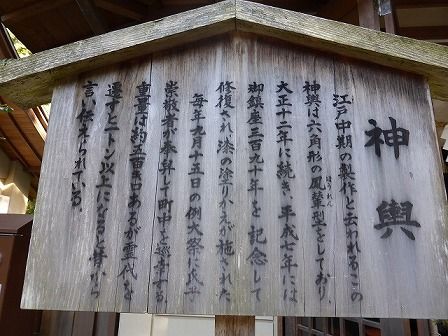 神輿
江戸中期の製作と云われるこの
神輿は六角形の鳳輦型をしており、
ほうれん
大正十二年に続き、平成七年には
御鎮座三百九十年を記念して
修復され漆の塗りかえが施された
毎年九月十五日の例大祭に氏子
崇敬者が奉昇して町中を巡幸する。
重量は約 であるが霊代を
遷すと二トン以上になると昔から
言い伝えられている。